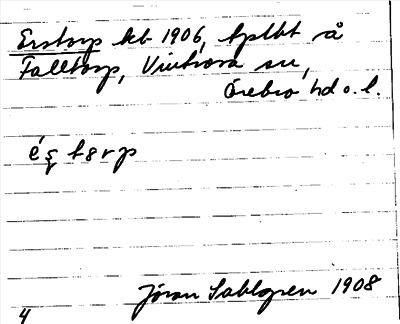 Erstorp kb 1906, hplbt å
Falltorp, Vintrosa sn,
Örebro hd o. l.
Jöran Sahlgren 1908
4